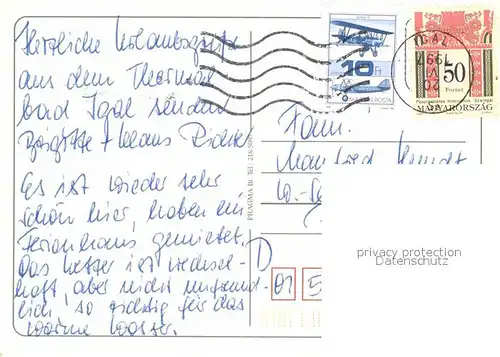 Herzliche Urlaubsgrüße
aus dem Thermal
bad Igal senden
Brigitte + Klaus
Es ist wieder sehr
schön hier, haben ein
Ferienhaus gemietet.
Das Wetter ist wechsel-
haft, aber nicht unfreund-
lich, so richtig für das
warme Wasser.
PRAGMA Bt. Tel.:
10 Ft
MAGYAR POSTA
IGAL
1997
50
Forint
MAGYARORSZÁG
Fam.
Manfred
D
01
privacy protection
Datenschutz